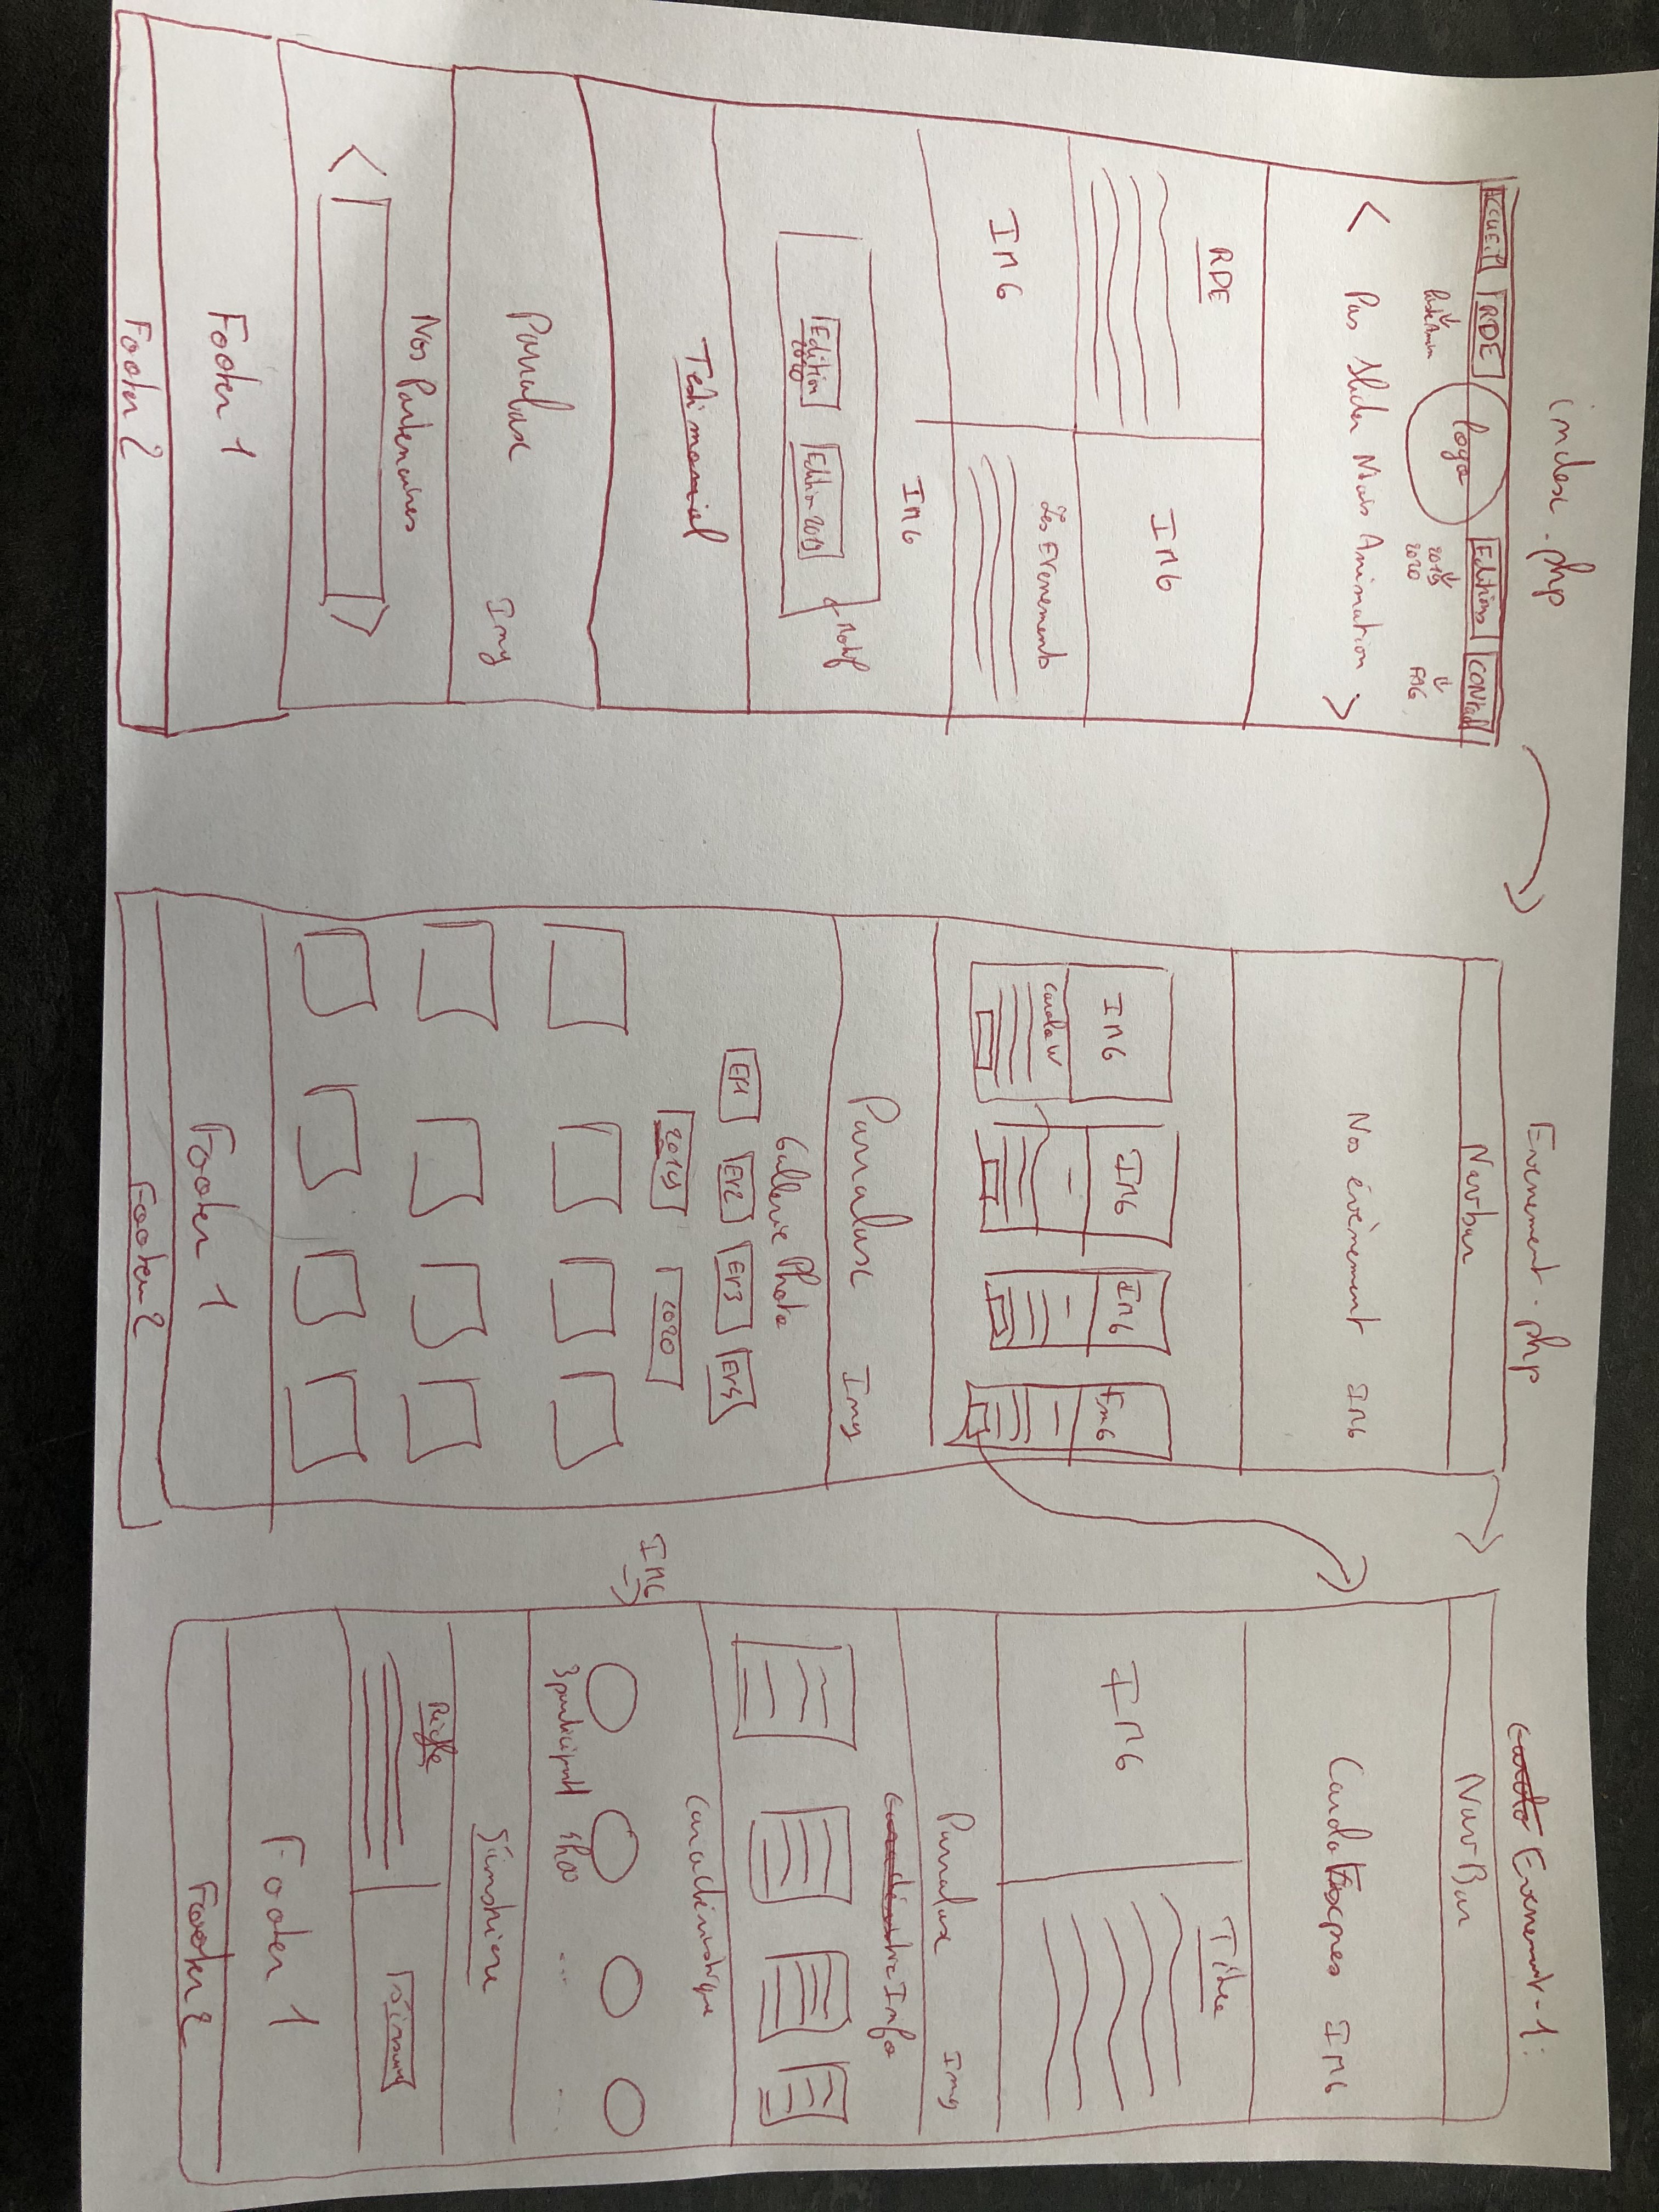 index.php
ACCUEIL RDE logo Editions CONtact
2019
2020
FAQ
< Pas Slider Mais Animation >
RDE
IMG
IMG
Les Evenements
IMG
Motif
Edition
2020
Edition 2019
Testimonial
Parralax
Img
Nos Partenaires
Footer 1
Footer 2
Evenement.php
Navbar
Nos évènement IMG
IMG IMG IMG Img
Cardo W
Parralax Img
Gallerie Photo
EV1 EV2 EV3 EV4
2019 2020
Footer 1
Footer 2
Evenement-1:
NavBar
Cardo Expres IMG
IMG
Titre
Parralax Img
Info
Caractéristique
IMG
3 participant
...
....
S'inscrire
Règle
S'inscrire
Footer 1
Footer 2